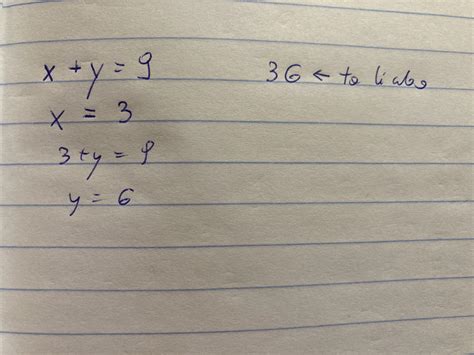 x + y = 9
x = 3
3 + y = 9
y = 6
36 ← to